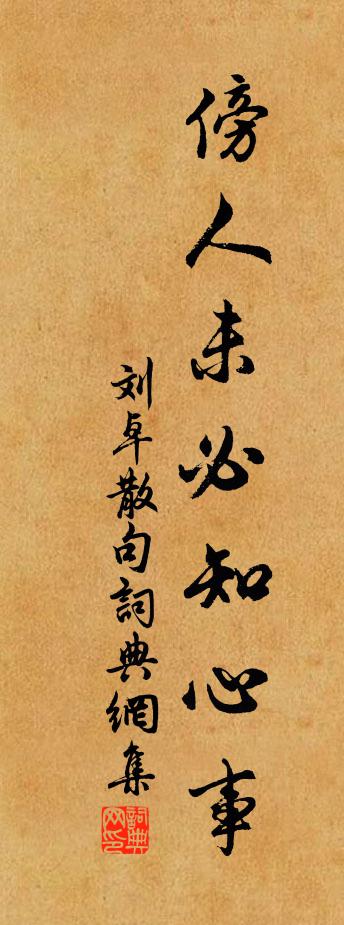 傍人未必知心事
刘卓散句詞典網集
詞典
网印